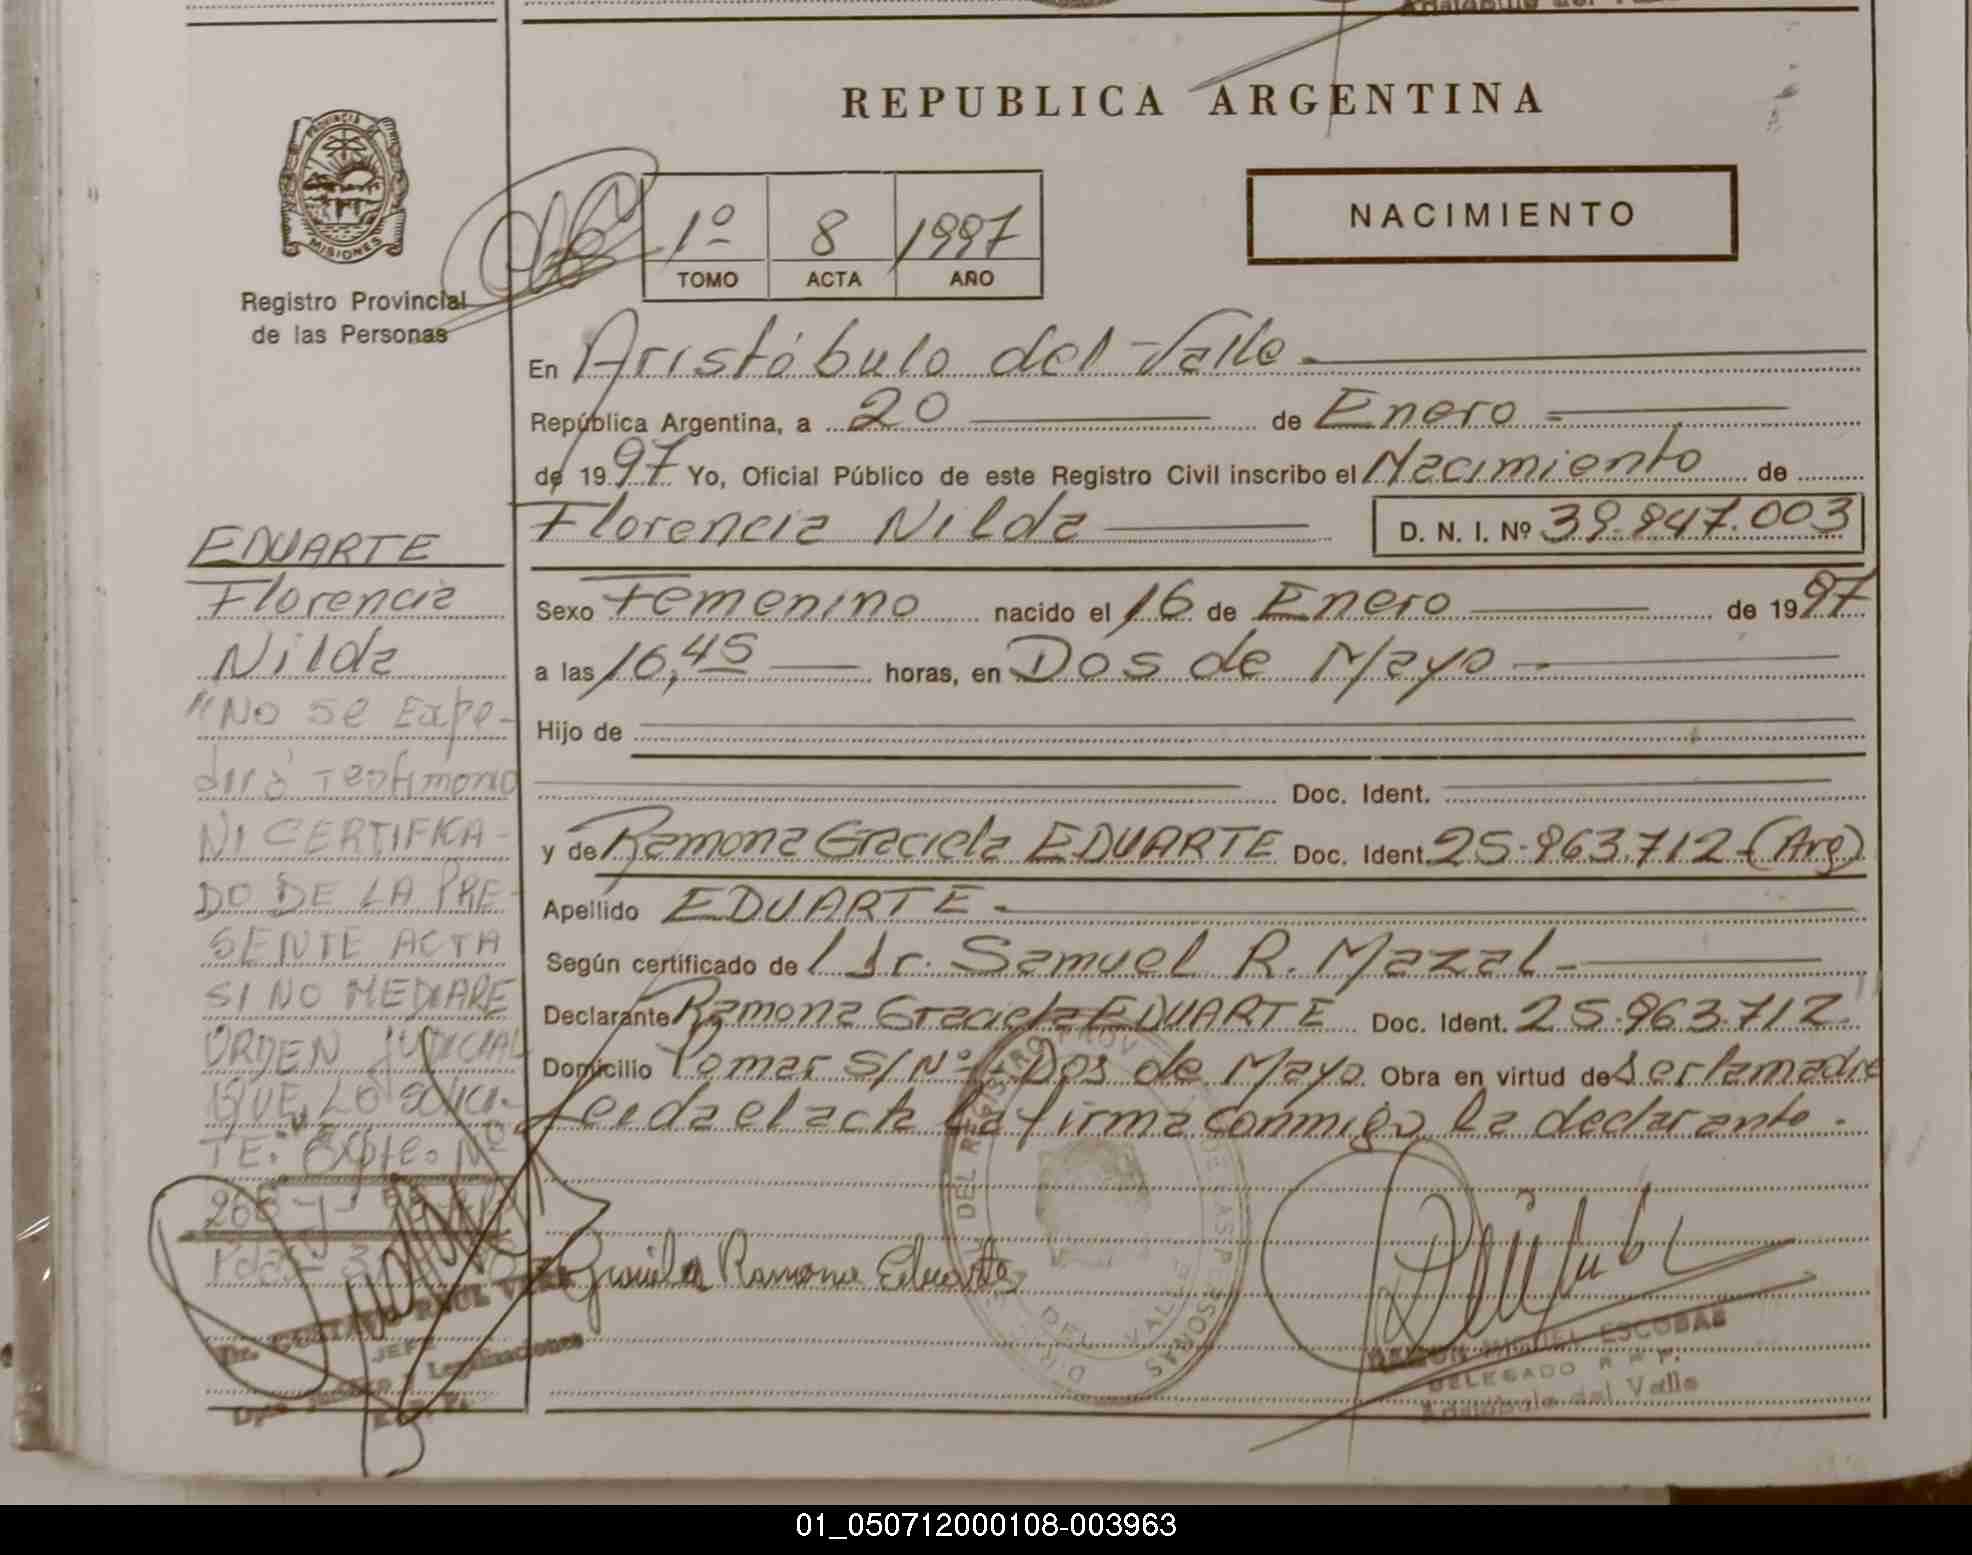 REPUBLICA ARGENTINA
PROVINCIA DE
MISIONES
Registro Provincial
de las Personas
1º 8 1997
TOMO ACTA AÑO
NACIMIENTO
En Aristóbulo del Valle
República Argentina, a 20 de Enero
de 1997 Yo, Oficial Público de este Registro Civil inscribo el Nacimiento de
Florencia Nilda D. N. I. Nº 39.847.003
Sexo Femenino nacido el 16 de Enero de 1997
a las 16,45 horas, en Dos de Mayo
Hijo de
Doc. Ident.
y de Ramona Graciela EDUARTE Doc. Ident. 25.863.712 (Arg)
Apellido EDUARTE
Según certificado de Dr. Samuel R. Mazal
Declarante Ramona Graciela EDUARTE Doc. Ident. 25.863.712.
Domicilio Pomar S/Nº - Dos de Mayo Obra en virtud de ser la madre
Leida el acta la firma conmigo la declarante.
Graciela Ramona Eduarte
RAMON MIGUEL ESCOBAR
DELEGADO R. P. P.
Aristóbulo del Valle
EDUARTE
Florencia
Nilda
"No se Expe-
dirá Testimonio
NI CERTIFICA-
DO DE LA PRE-
SENTE ACTA
SI NO MEDIARE
ORDEN JUDICIAL
QUE LO SOLICI-
TE." Expte. Nº
Dr. GUSTAVO RAUL VERA
JEFE
Legalizaciones
R. P. P.
01_050712000108-003963